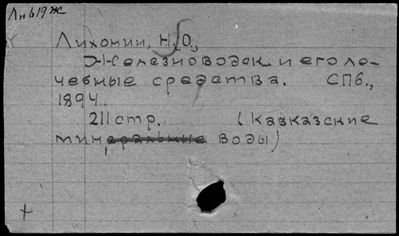 Лихонин, Н.О.,
Железноводск и его ле-
чебные средства. СПб.,
1894.
211 стр. (Кавказские
минеральные воды)